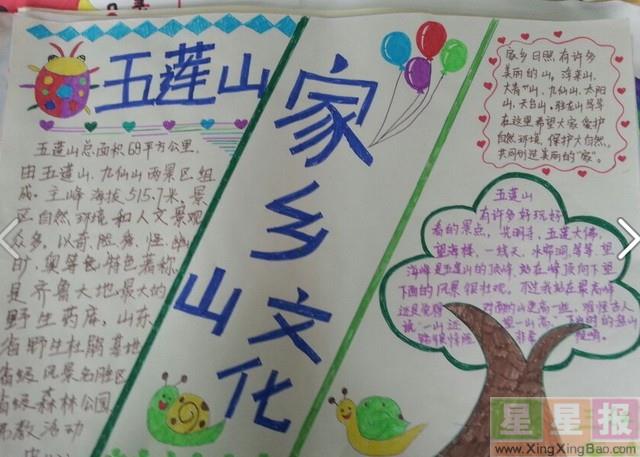 五莲山
五莲山总面积68平方公里.
由五莲山.九仙山两景区组
成.主峰海拔515.7米.景
区自然环境和人文景观
众多.以奇.险.秀.怪.幽
奥等色特色著称
是齐鲁大地最大的
野生药库.山东
省野生杜鹃基地
省级风景名胜区
省级森林公园
教活动
家乡山文化
家乡日照,有许多
美丽的山,浮来山.
大青山,九仙山.太阳
山.天台山.驻龙山等等
在这里希望大家爱护
自然环境.保护大自然.
共同创造美丽的"家".
五莲山
有许多好玩好
看的景点,光明寺,五莲大佛,
望海楼,一线天,水帘洞,等等.望
海峰是五莲山的顶峰.站在峰顶向下望
下面的风景很壮观.不过我站在最高峰
还是觉得对面的山更高一些,难怪古人
说一山还望一山高.
星星报
www.XingXingBao.com